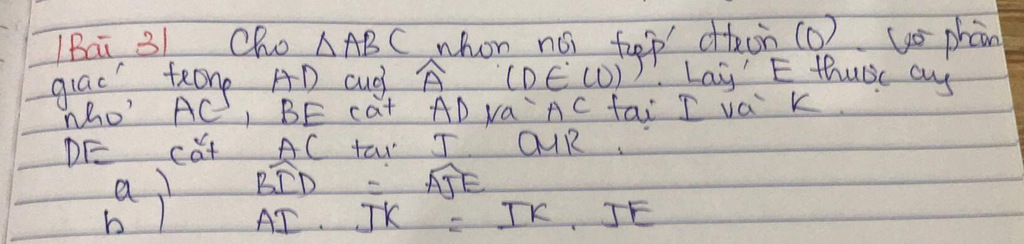 |Bài 3| Cho △ABC nhọn nội tiếp đtròn (O). Vẽ phân
giác trong AD của Â (D ∈ (O)). Lấy E thuộc cung
nhỏ AC, BE cắt AD và AC tại I và K.
DE cắt AC tại J. CMR.
a) BID = AJE
b) AI. JK = IK. JE